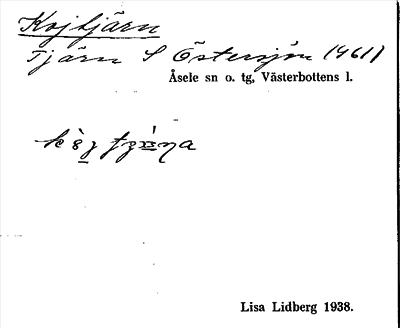 Kojtjärn
Tjärn S Östersjön (461)
Åsele sn o. tg, Västerbottens l.
Lisa Lidberg 1938.